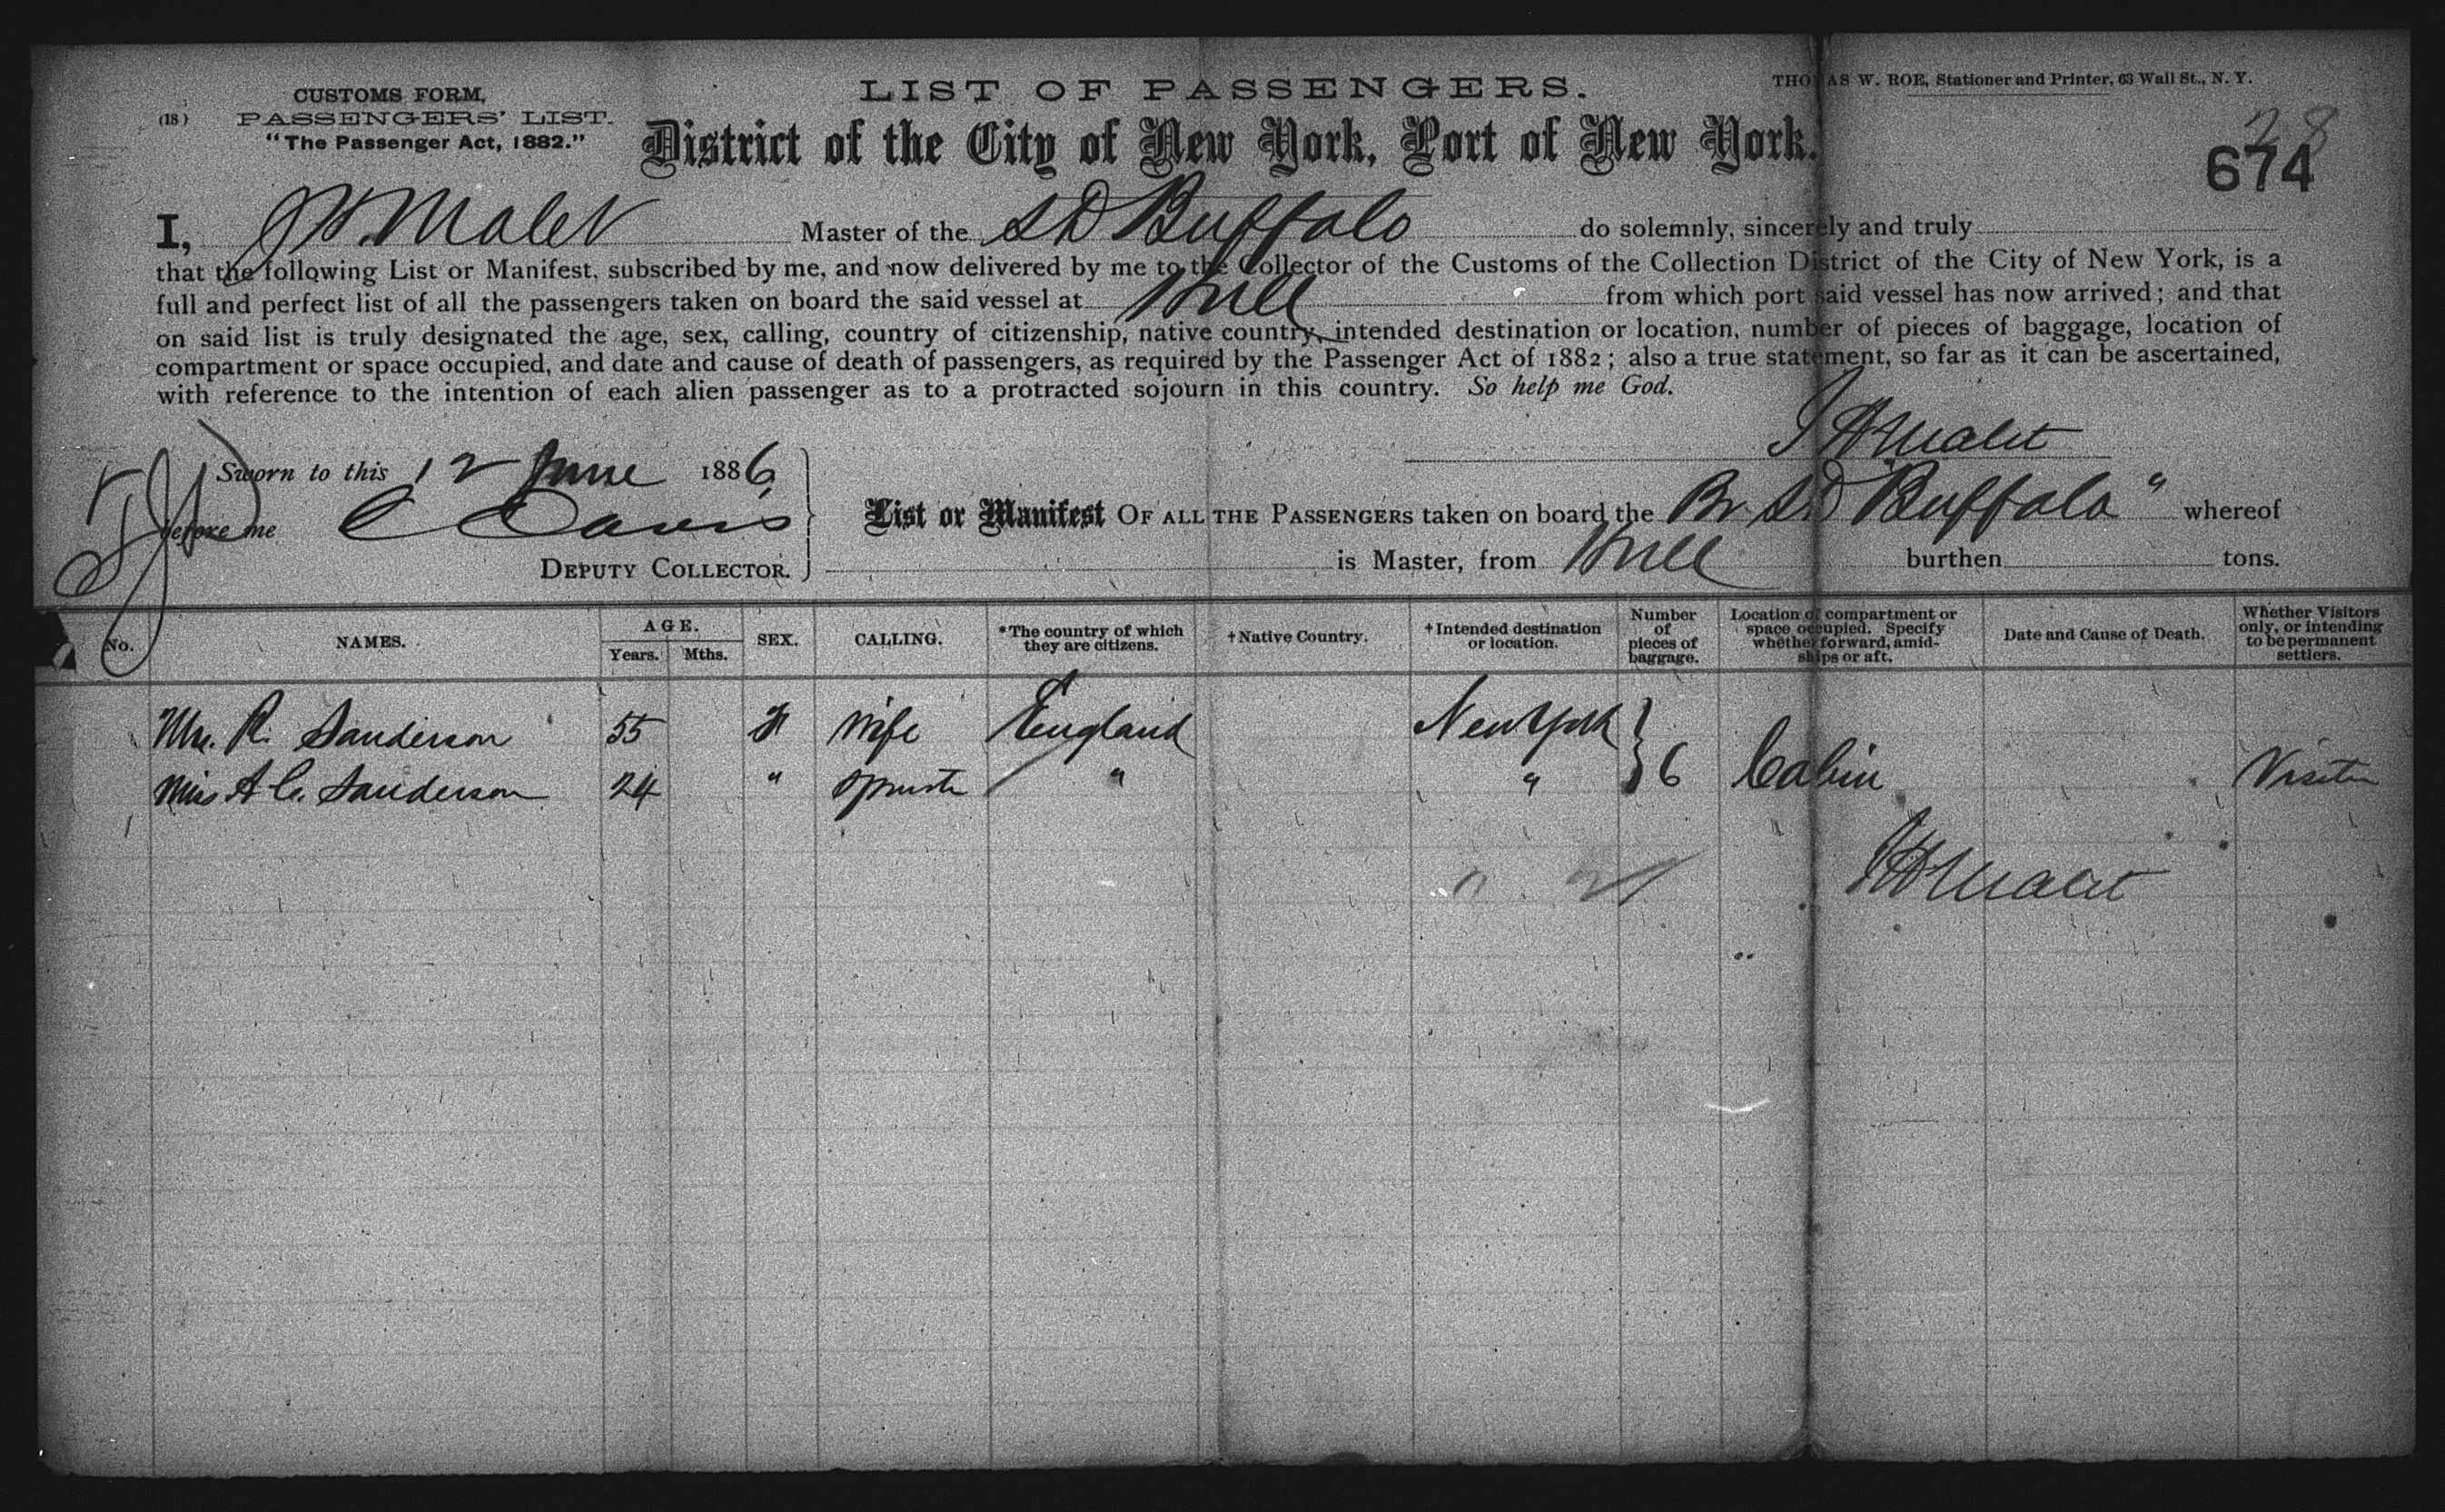 CUSTOMS FORM,
(18) PASSENGERS' LIST.
"The Passenger Act, 1882."
LIST OF PASSENGERS.
THOMAS W. ROE, Stationer and Printer, 63 Wall St., N. Y.
District of the City of New York, Port of New York.
28
674
I, J H Malet Master of the SS Buffalo do solemnly, sincerely and truly
that the following List or Manifest, subscribed by me, and now delivered by me to the Collector of the Customs of the Collection District of the City of New York, is a
full and perfect list of all the passengers taken on board the said vessel at Hull from which port said vessel has now arrived; and that
on said list is truly designated the age, sex, calling, country of citizenship, native country, intended destination or location, number of pieces of baggage, location of
compartment or space occupied, and date and cause of death of passengers, as required by the Passenger Act of 1882; also a true statement, so far as it can be ascertained,
with reference to the intention of each alien passenger as to a protracted sojourn in this country. So help me God.
J H Malet
Sworn to this 12 June 1886
before me C Davis
DEPUTY COLLECTOR.
List or Manifest OF ALL THE PASSENGERS taken on board the Br SS Buffalo" whereof
is Master, from Hull burthen tons.
No. NAMES. AGE. Years. Mths. SEX. CALLING. *The country of which they are citizens. †Native Country. †Intended destination or location. Number of pieces of baggage. Location of compartment or space occupied. Specify whether forward, amidships or aft. Date and Cause of Death. Whether Visitors only, or intending to be permanent settlers.
Mrs. R. Sanderson 55 F Wife England New York
Miss A C. Sanderson 24 " Spinster " " 6 Cabin Visitor
J H Malet